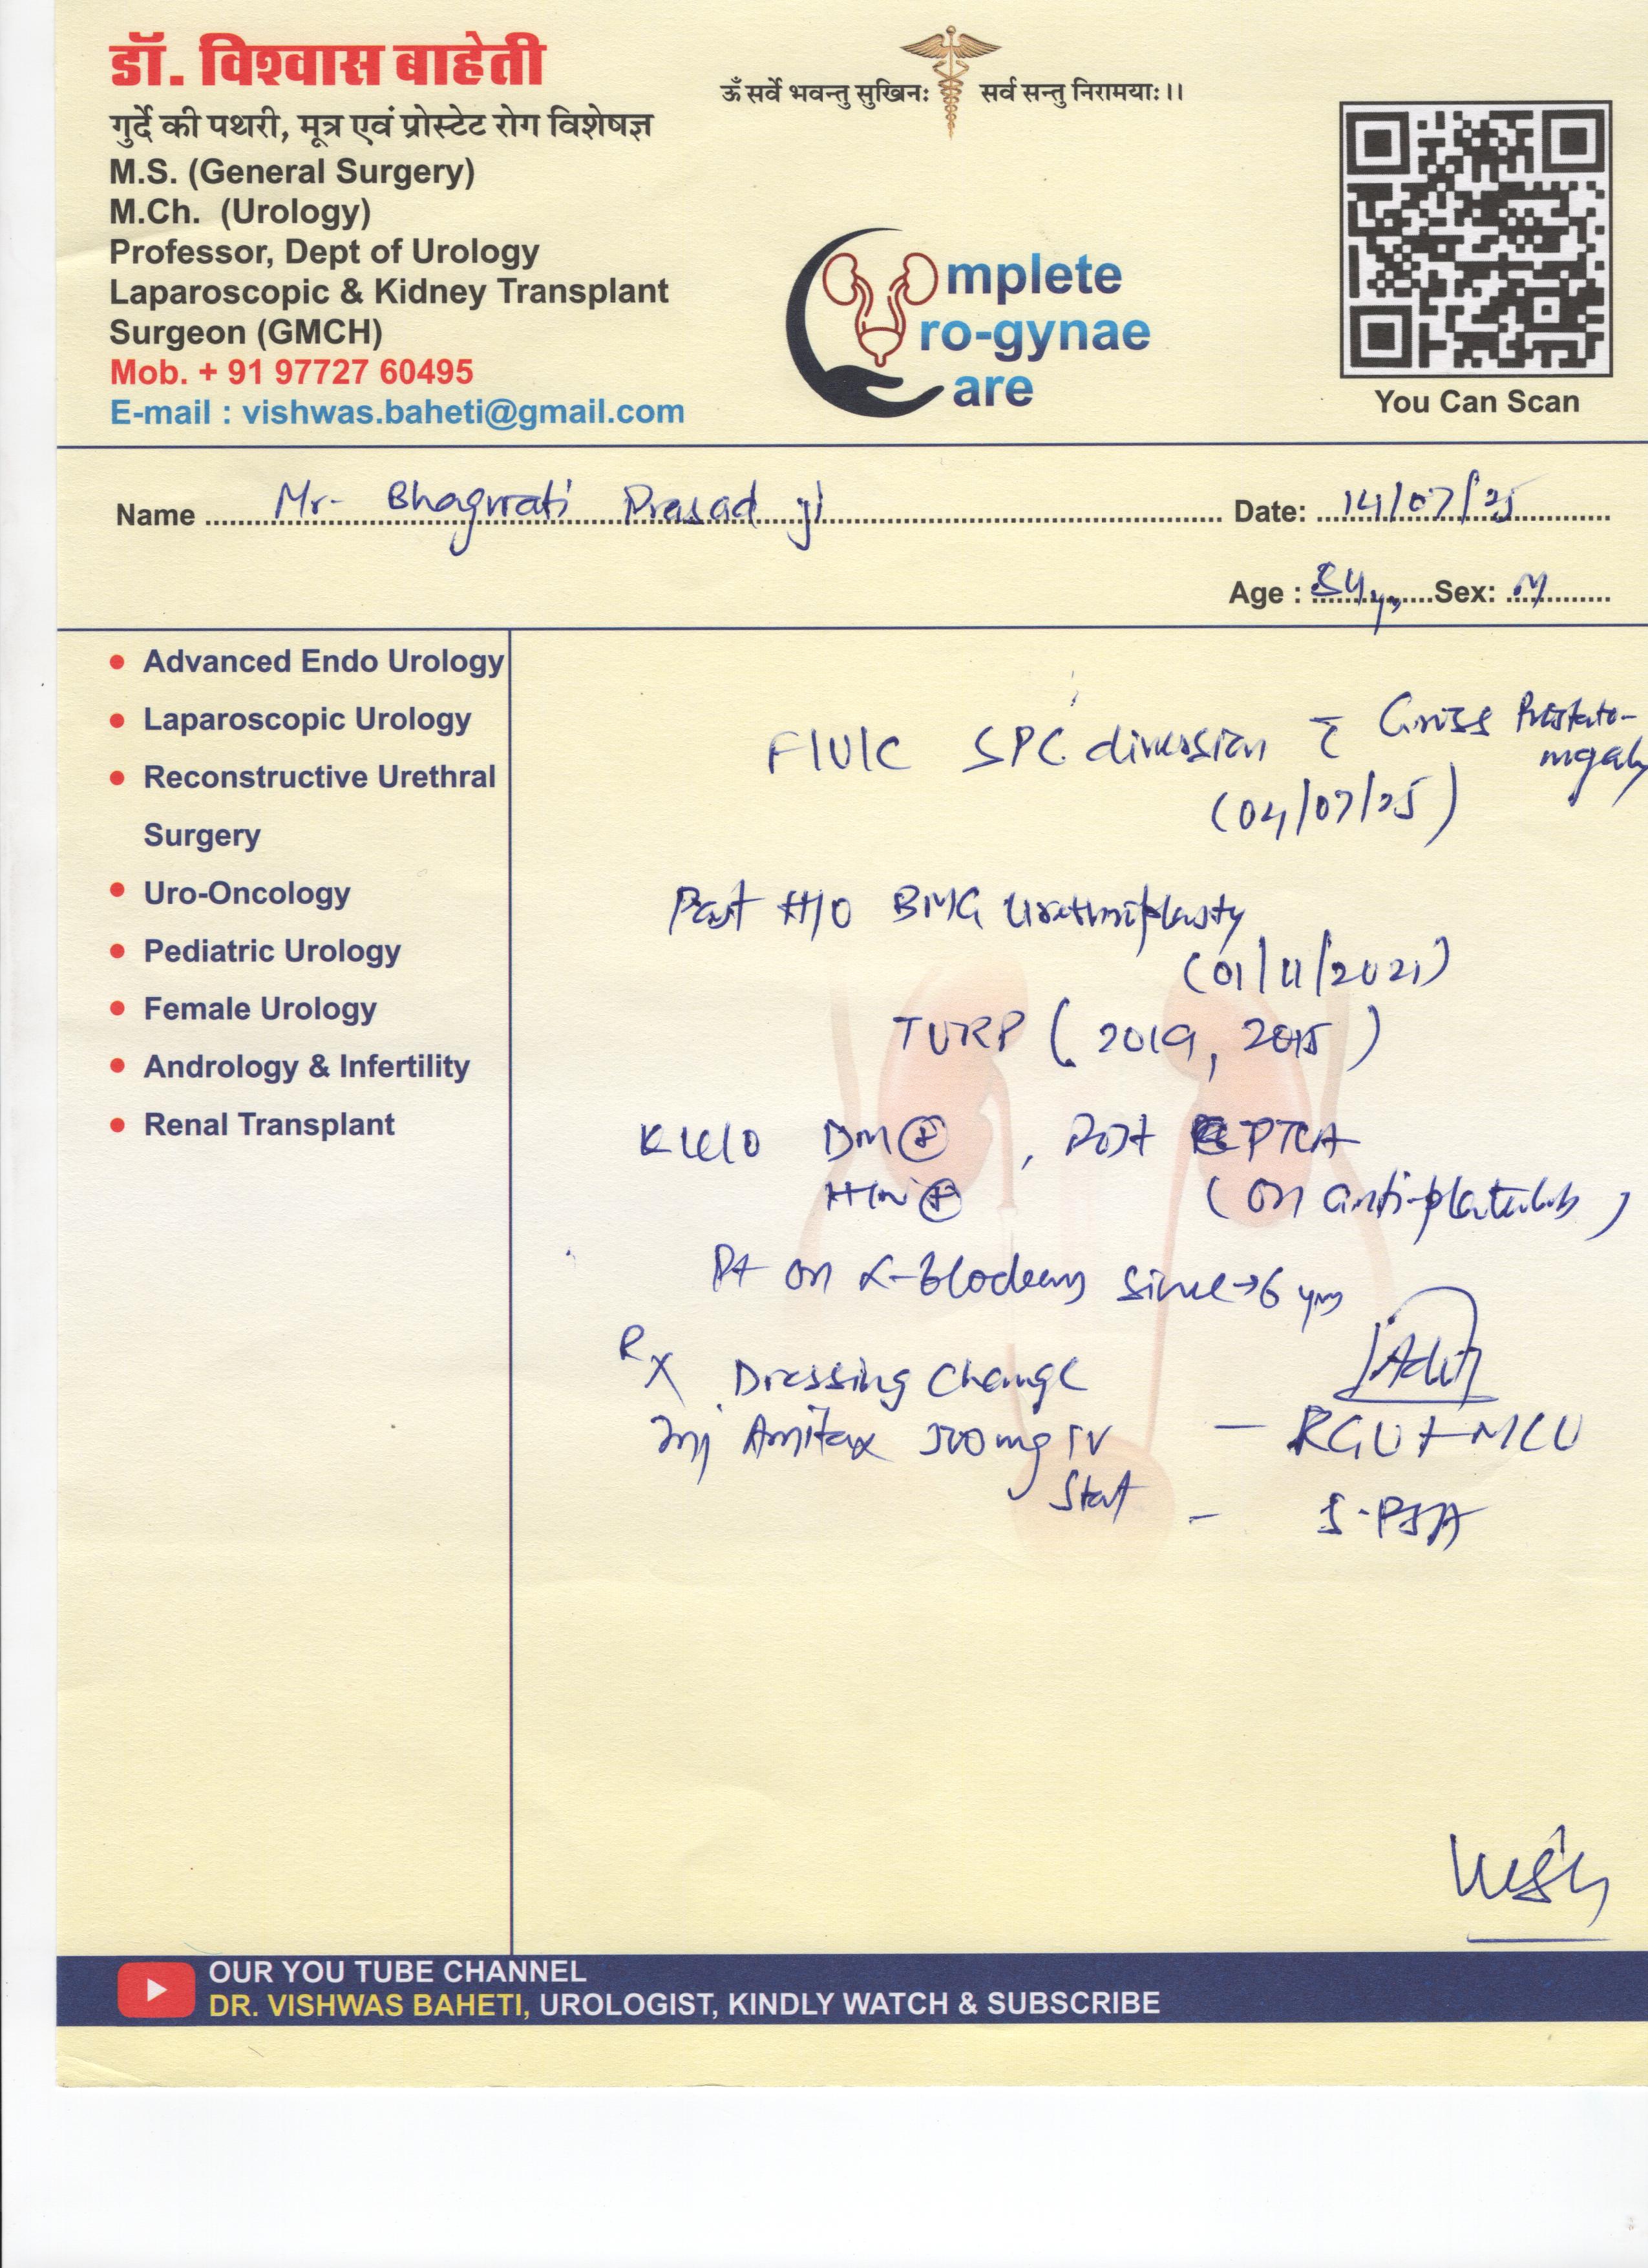 डॉ. विश्वास बाहेती
गुर्दे की पथरी, मूत्र एवं प्रोस्टेट रोग विशेषज्ञ
M.S. (General Surgery)
M.Ch. (Urology)
Professor, Dept of Urology
Laparoscopic & Kidney Transplant
Surgeon (GMCH)
Mob. + 91 97727 60495
E-mail : vishwas.baheti@gmail.com
ॐ सर्वे भवन्तु सुखिनः सर्व सन्तु निरामयाः।।
mplete
ro-gynae
are
You Can Scan
Name Mr. Bhagwati Prasad ji Date: 14/07/25
Age : 84 yrs Sex: M
Advanced Endo Urology
Laparoscopic Urology
Reconstructive Urethral
Surgery
Uro-Oncology
Pediatric Urology
Female Urology
Andrology & Infertility
Renal Transplant
F/U/C SPC diversion c̄ Gross Prostato-
megaly
(04/07/25)
Past H/O BMG Urethroplasty
(01/11/2021)
TURP (2019, 2015)
K/C/O DM ⊕, Post PTCA
HTN ⊕ (on anti-platelets)
Pt on α-blockers since → 6 yrs
Rx Dressing Change
Inj Amitax 500mg IV
Stat
Adv
– RGU + MCU
– S. PSA
OUR YOU TUBE CHANNEL
DR. VISHWAS BAHETI, UROLOGIST, KINDLY WATCH & SUBSCRIBE